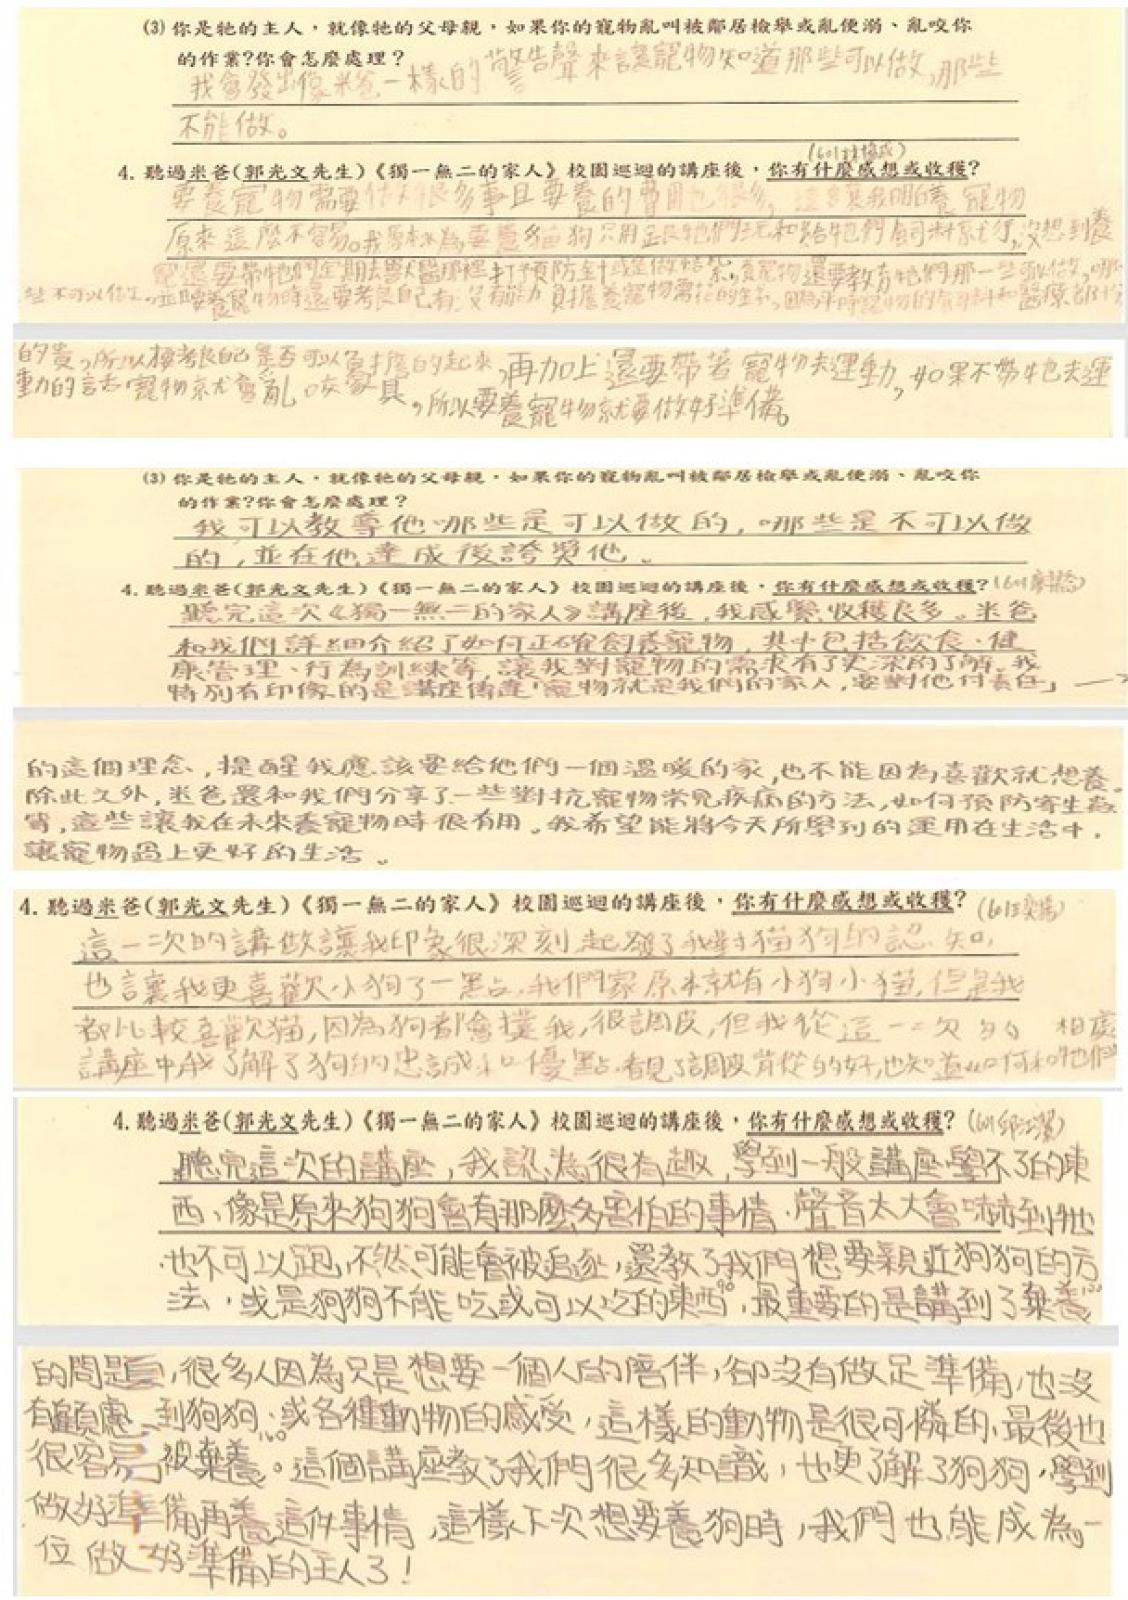 (3) 你是牠的主人，就像牠的父母親，如果你的寵物亂叫被鄰居檢舉或亂便溺、亂咬你
的作業?你會怎麼處理？
我會發出像米爸一樣的警告聲來讓寵物知道那些可以做，那些
不能做。
4. 聽過米爸(郭光文先生)《獨一無二的家人》校園巡迴的講座後，你有什麼感想或收穫？
要養寵物需要做很多事且要養的費用也很多，這會讓我明白養寵物
原來這麼不容易。我原本以為要養貓狗只用跟牠們玩和給牠們飼料就行，沒想到養
寵還要帶牠們定期去獸醫那裡打預防針或是做結紮，養寵物還要教育牠們那一些可以做，哪
些不可以做，並且要養寵物時還要考慮自己有沒有能力負擔養寵物需花的金錢，因為平時寵物的飼料和醫療都十分
的貴，所以要考慮自己是否可以負擔的起來，再加上還要帶著寵物去運動，如果不帶牠去運
動的話，寵物就會亂咬家具，所以要養寵物就要做好準備。
(3) 你是牠的主人，就像牠的父母親，如果你的寵物亂叫被鄰居檢舉或亂便溺、亂咬你
的作業?你會怎麼處理？
我可以教導他哪些是可以做的，哪些是不可以做
的，並在他達成後誇獎他。
4. 聽過米爸(郭光文先生)《獨一無二的家人》校園巡迴的講座後，你有什麼感想或收穫？
聽完這次《獨一無二的家人》講座後，我感覺收穫良多。米爸
和我們詳細介紹了如何正確飼養寵物，其中包括飲食、健
康管理、行為訓練等，讓我對寵物的需求有了更深的了解。我
特別有印像的是講座傳達「寵物就是我們的家人，要對他付責任」
的這個理念，提醒我應該要給他們一個溫暖的家，也不能因為喜歡就想養。
除此之外，米爸還和我們分享了一些對抗寵物常見疾病的方法，如何預防寄生蟲
等，這些讓我在未來養寵物時很有用。我希望能將今天所學到的運用在生活中，
讓寵物過上更好的生活。
4. 聽過米爸(郭光文先生)《獨一無二的家人》校園巡迴的講座後，你有什麼感想或收穫？
這一次的講做讓我印象很深刻，起發了我對貓狗的認知，
也讓我更喜歡小狗了一點，我們家原本就有小狗小貓，但是我
都比較喜歡貓，因為狗都會撲我，很調皮，但我從這一次的 相處
講座中我了解了狗的忠誠和優點，看見了調皮背從的好，也知道如何和牠們
4. 聽過米爸(郭光文先生)《獨一無二的家人》校園巡迴的講座後，你有什麼感想或收穫？
聽完這次的講座，我認為很有趣，學到一般講座學不了的東
西，像是原來狗狗會有那麼多害怕的事情，聲音太大會嚇到牠
也不可以跑，不然可能會被追逐，還教了我們想要親近狗狗的方
法，或是狗狗不能吃或可以吃的東西，最重要的是講到了棄養
的問題，很多人因為只是想要一個人的陪伴，卻沒有做足準備，也沒
有顧慮到狗狗或各種動物的感受，這樣的動物是很可憐的，最後也
很容易被棄養。這個講座教了我們很多知識，也更了解了狗狗，學到
做好準備再養這件事情，這樣下次想要養狗時，我們也能成為一
位做好準備的主人了！